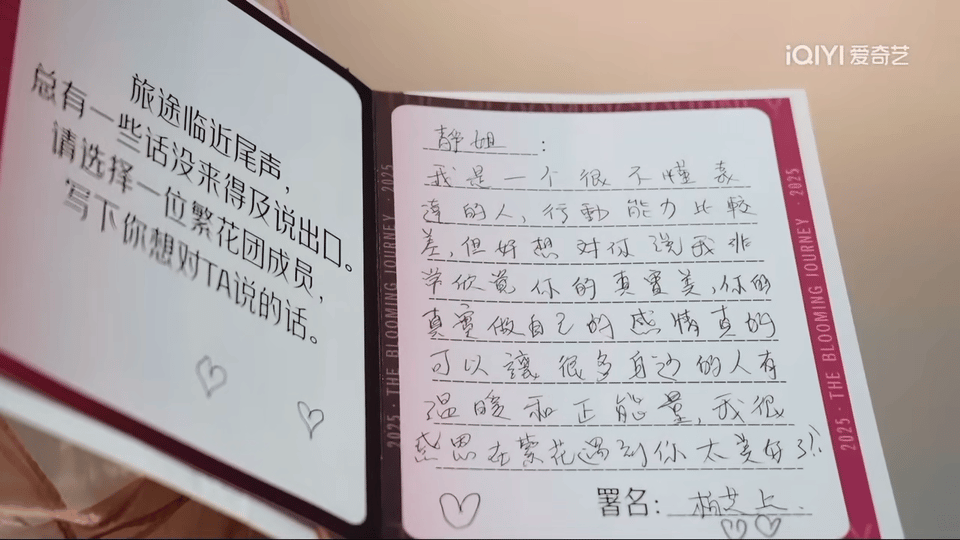 iQIYI 爱奇艺
旅途临近尾声，
总有一些话没来得及说出口。
请选择一位繁花团成员，
写下你想对TA说的话。
2025 · THE BLOOMING JOURNEY · 2025
静姐：
我是一个很不懂表
達的人，行動能力比較
差，但好想对你说我非
常欣赏你的真實美，你的
真實做自己的感情真的
可以讓很多身边的人有
温暖和正能量，我很
感恩在繁花遇到你太美好了！
署名：
2025 · THE BLOOMING JOURNEY · 2025